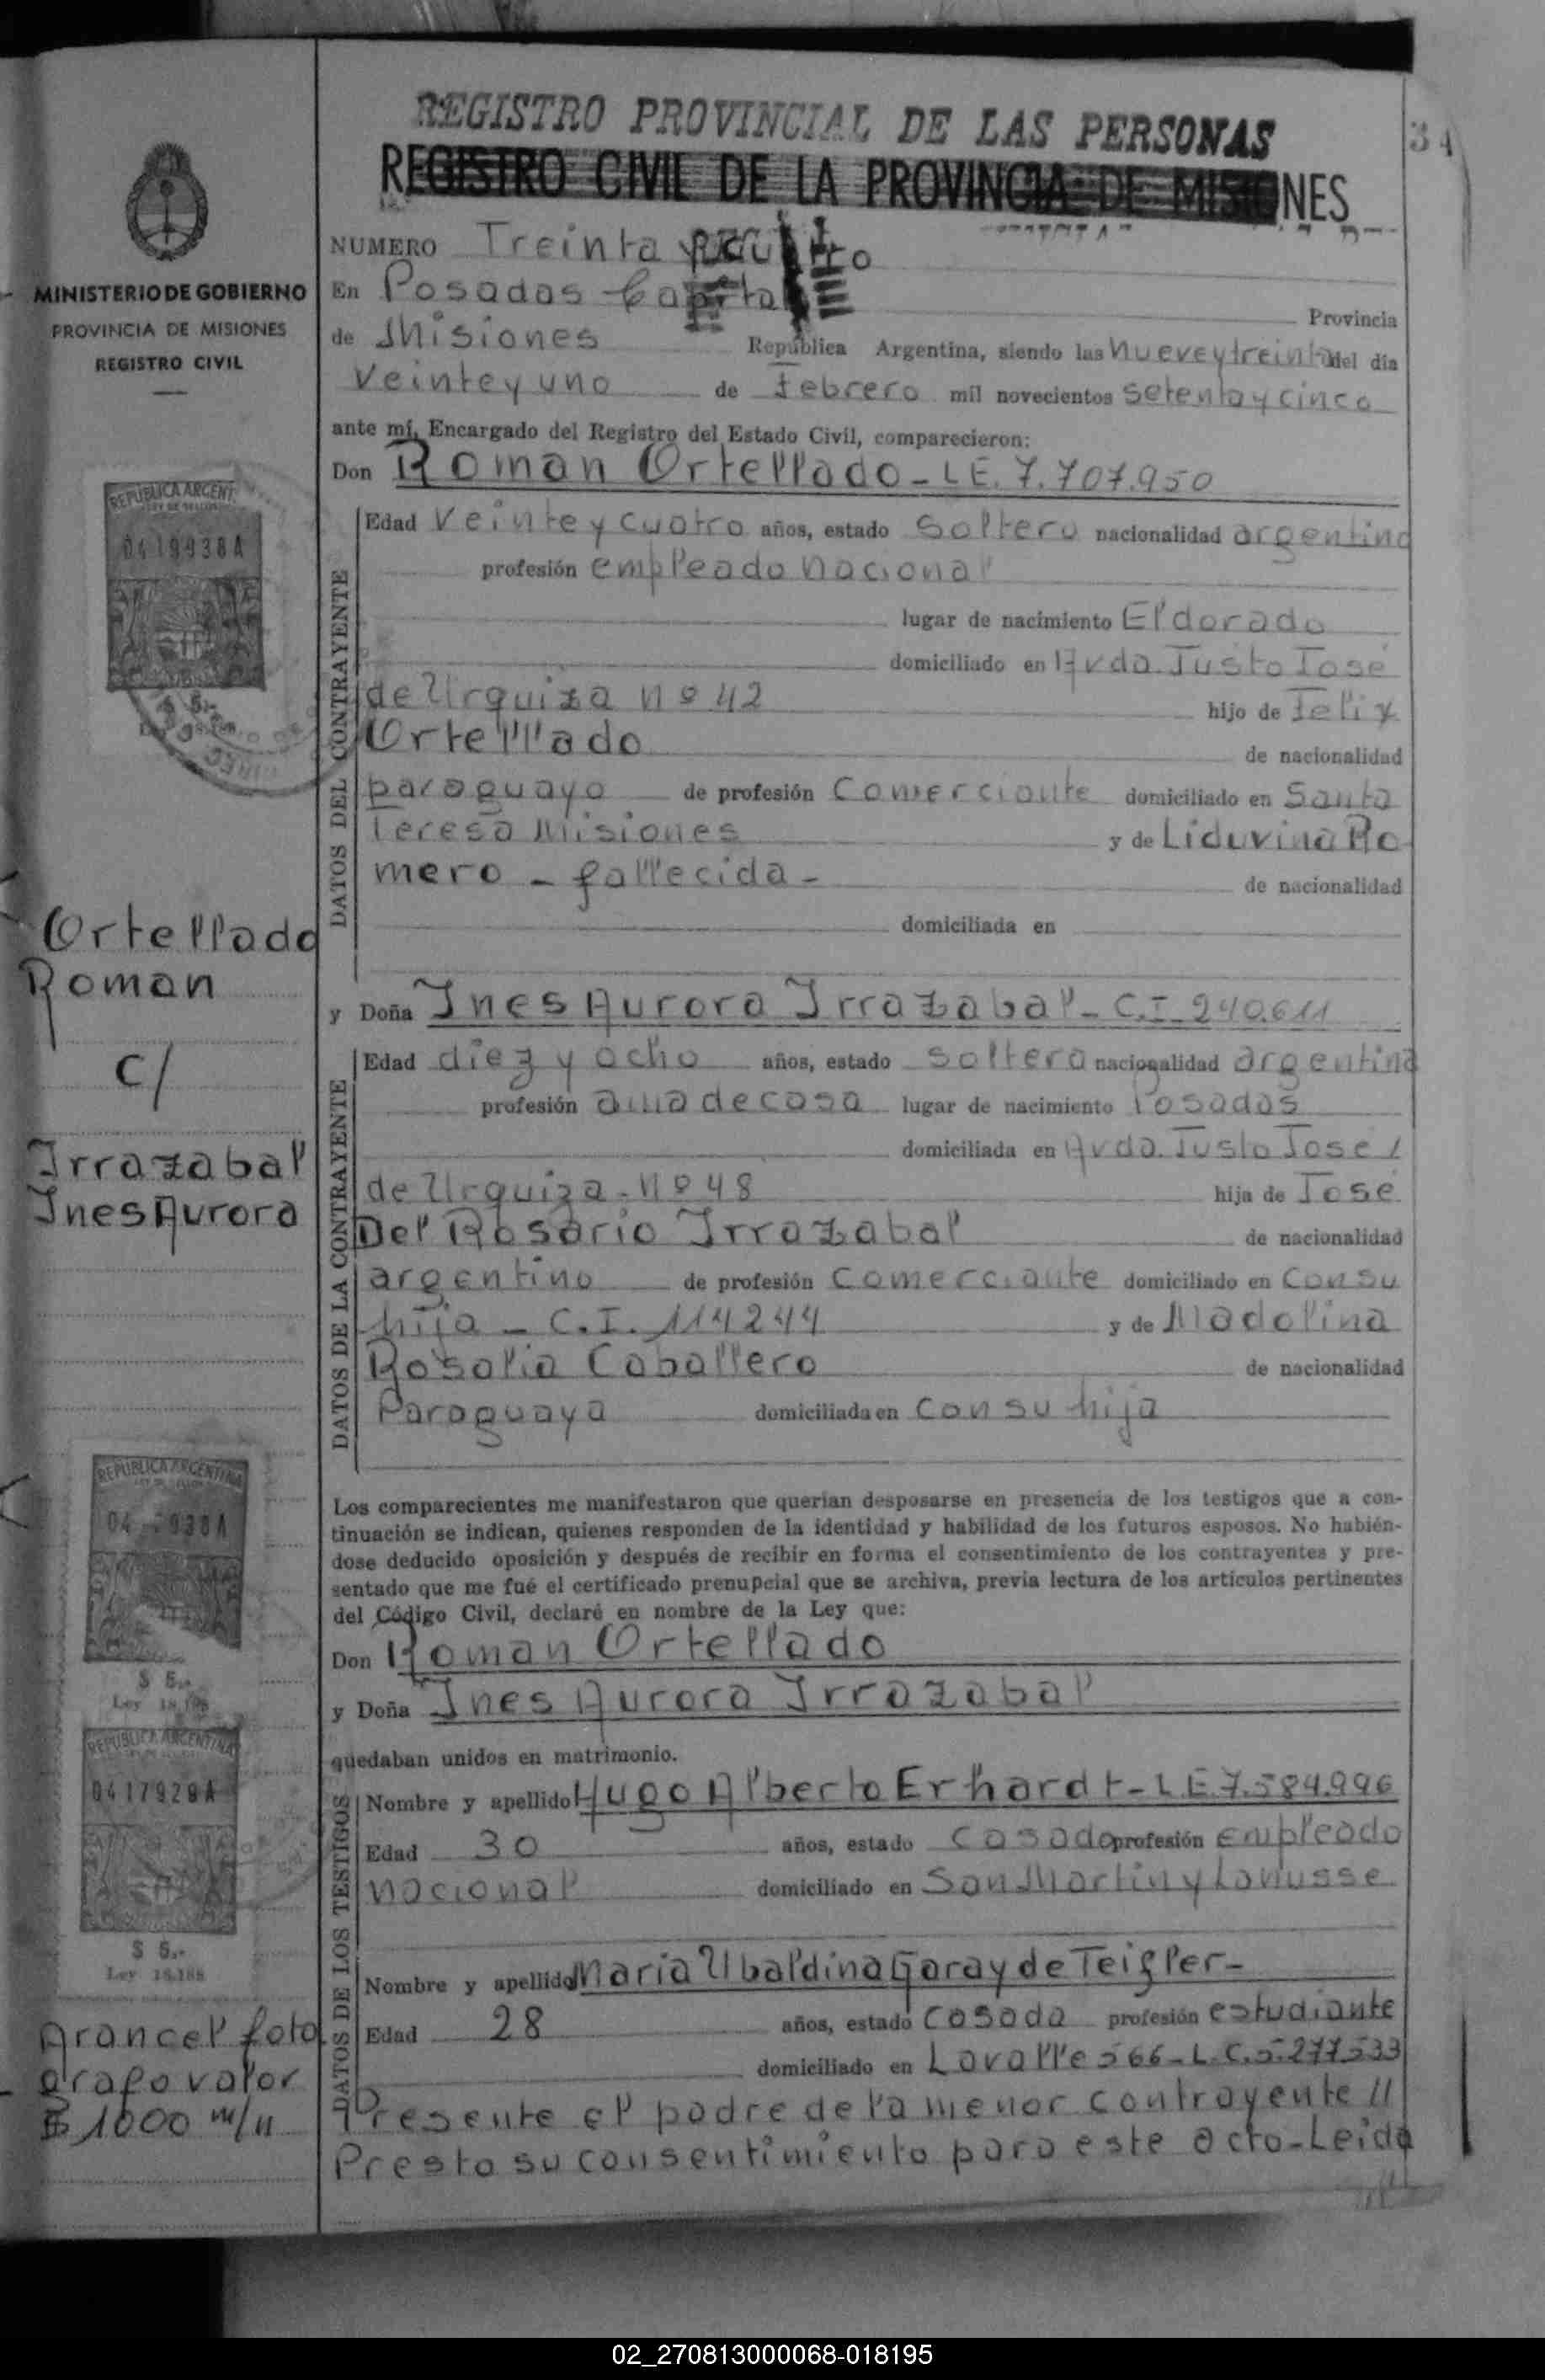 REGISTRO PROVINCIAL DE LAS PERSONAS
REGISTRO CIVIL DE LA PROVINCIA DE MISIONES
34
MINISTERIO DE GOBIERNO
PROVINCIA DE MISIONES
REGISTRO CIVIL
NUMERO Treinta y cuatro
En Posadas Capital Provincia
de Misiones República Argentina, siendo las nueve y treinta del día
veinte y uno de Febrero mil novecientos setenta y cinco
ante mí, Encargado del Registro del Estado Civil, comparecieron:
Don Roman Ortellado - LE. 7.707.950
DATOS DEL CONTRAYENTE
Edad veinte y cuatro años, estado soltero nacionalidad argentino
profesión empleado nacional
lugar de nacimiento Eldorado
domiciliado en Avda. Justo José
de Urquiza Nº 42 hijo de Felix
Ortellado de nacionalidad
paraguayo de profesión Comerciante domiciliado en Santa
Teresa Misiones y de Liduvina Ro
mero - fallecida - de nacionalidad
domiciliada en
y Doña Ines Aurora Irrazabal - C.I. 240.611
DATOS DE LA CONTRAYENTE
Edad diez y ocho años, estado soltera nacionalidad argentina
profesión ama de casa lugar de nacimiento Posadas
domiciliada en Avda. Justo Jose /
de Urquiza - Nº 48 hija de José
Del Rosario Irrazabal de nacionalidad
argentino de profesión comerciante domiciliado en con su
hija - C.I. 114244 y de Madolina
Rosalia Caballero de nacionalidad
Paraguaya domiciliada en con su hija
Los comparecientes me manifestaron que querían desposarse en presencia de los testigos que a con-
tinuación se indican, quienes responden de la identidad y habilidad de los futuros esposos. No habién-
dose deducido oposición y después de recibir en forma el consentimiento de los contrayentes y pre-
sentado que me fué el certificado prenupcial que se archiva, previa lectura de los artículos pertinentes
del Código Civil, declaré en nombre de la Ley que:
Don Roman Ortellado
y Doña Ines Aurora Irrazabal
quedaban unidos en matrimonio.
DATOS DE LOS TESTIGOS
Nombre y apellido Hugo Alberto Erhardt - L.E. 7.584.996
Edad 30 años, estado casado profesión empleado
nacional domiciliado en San Martin y Lanusse
Nombre y apellido Maria Ubaldina Garay de Teigler -
Edad 28 años, estado casada profesión estudiante
domiciliado en Lavalle 566 - L.C. 5.277.533
Presente el padre de la menor contrayente //
Presta su consentimiento para este acto - Leida
REPUBLICA ARGENT.
0419938A
$ 5.-
Ortellado
Roman
C/
Irrazabal
Ines Aurora
REPUBLICA ARGENTINA
$ 5.-
Ley 18.188
REPUBLICA ARGENTINA
0417929A
$ 5.-
Ley 18.188
Arancel foto
grafo valor
$ 1000 m/n
02_270813000068-018195